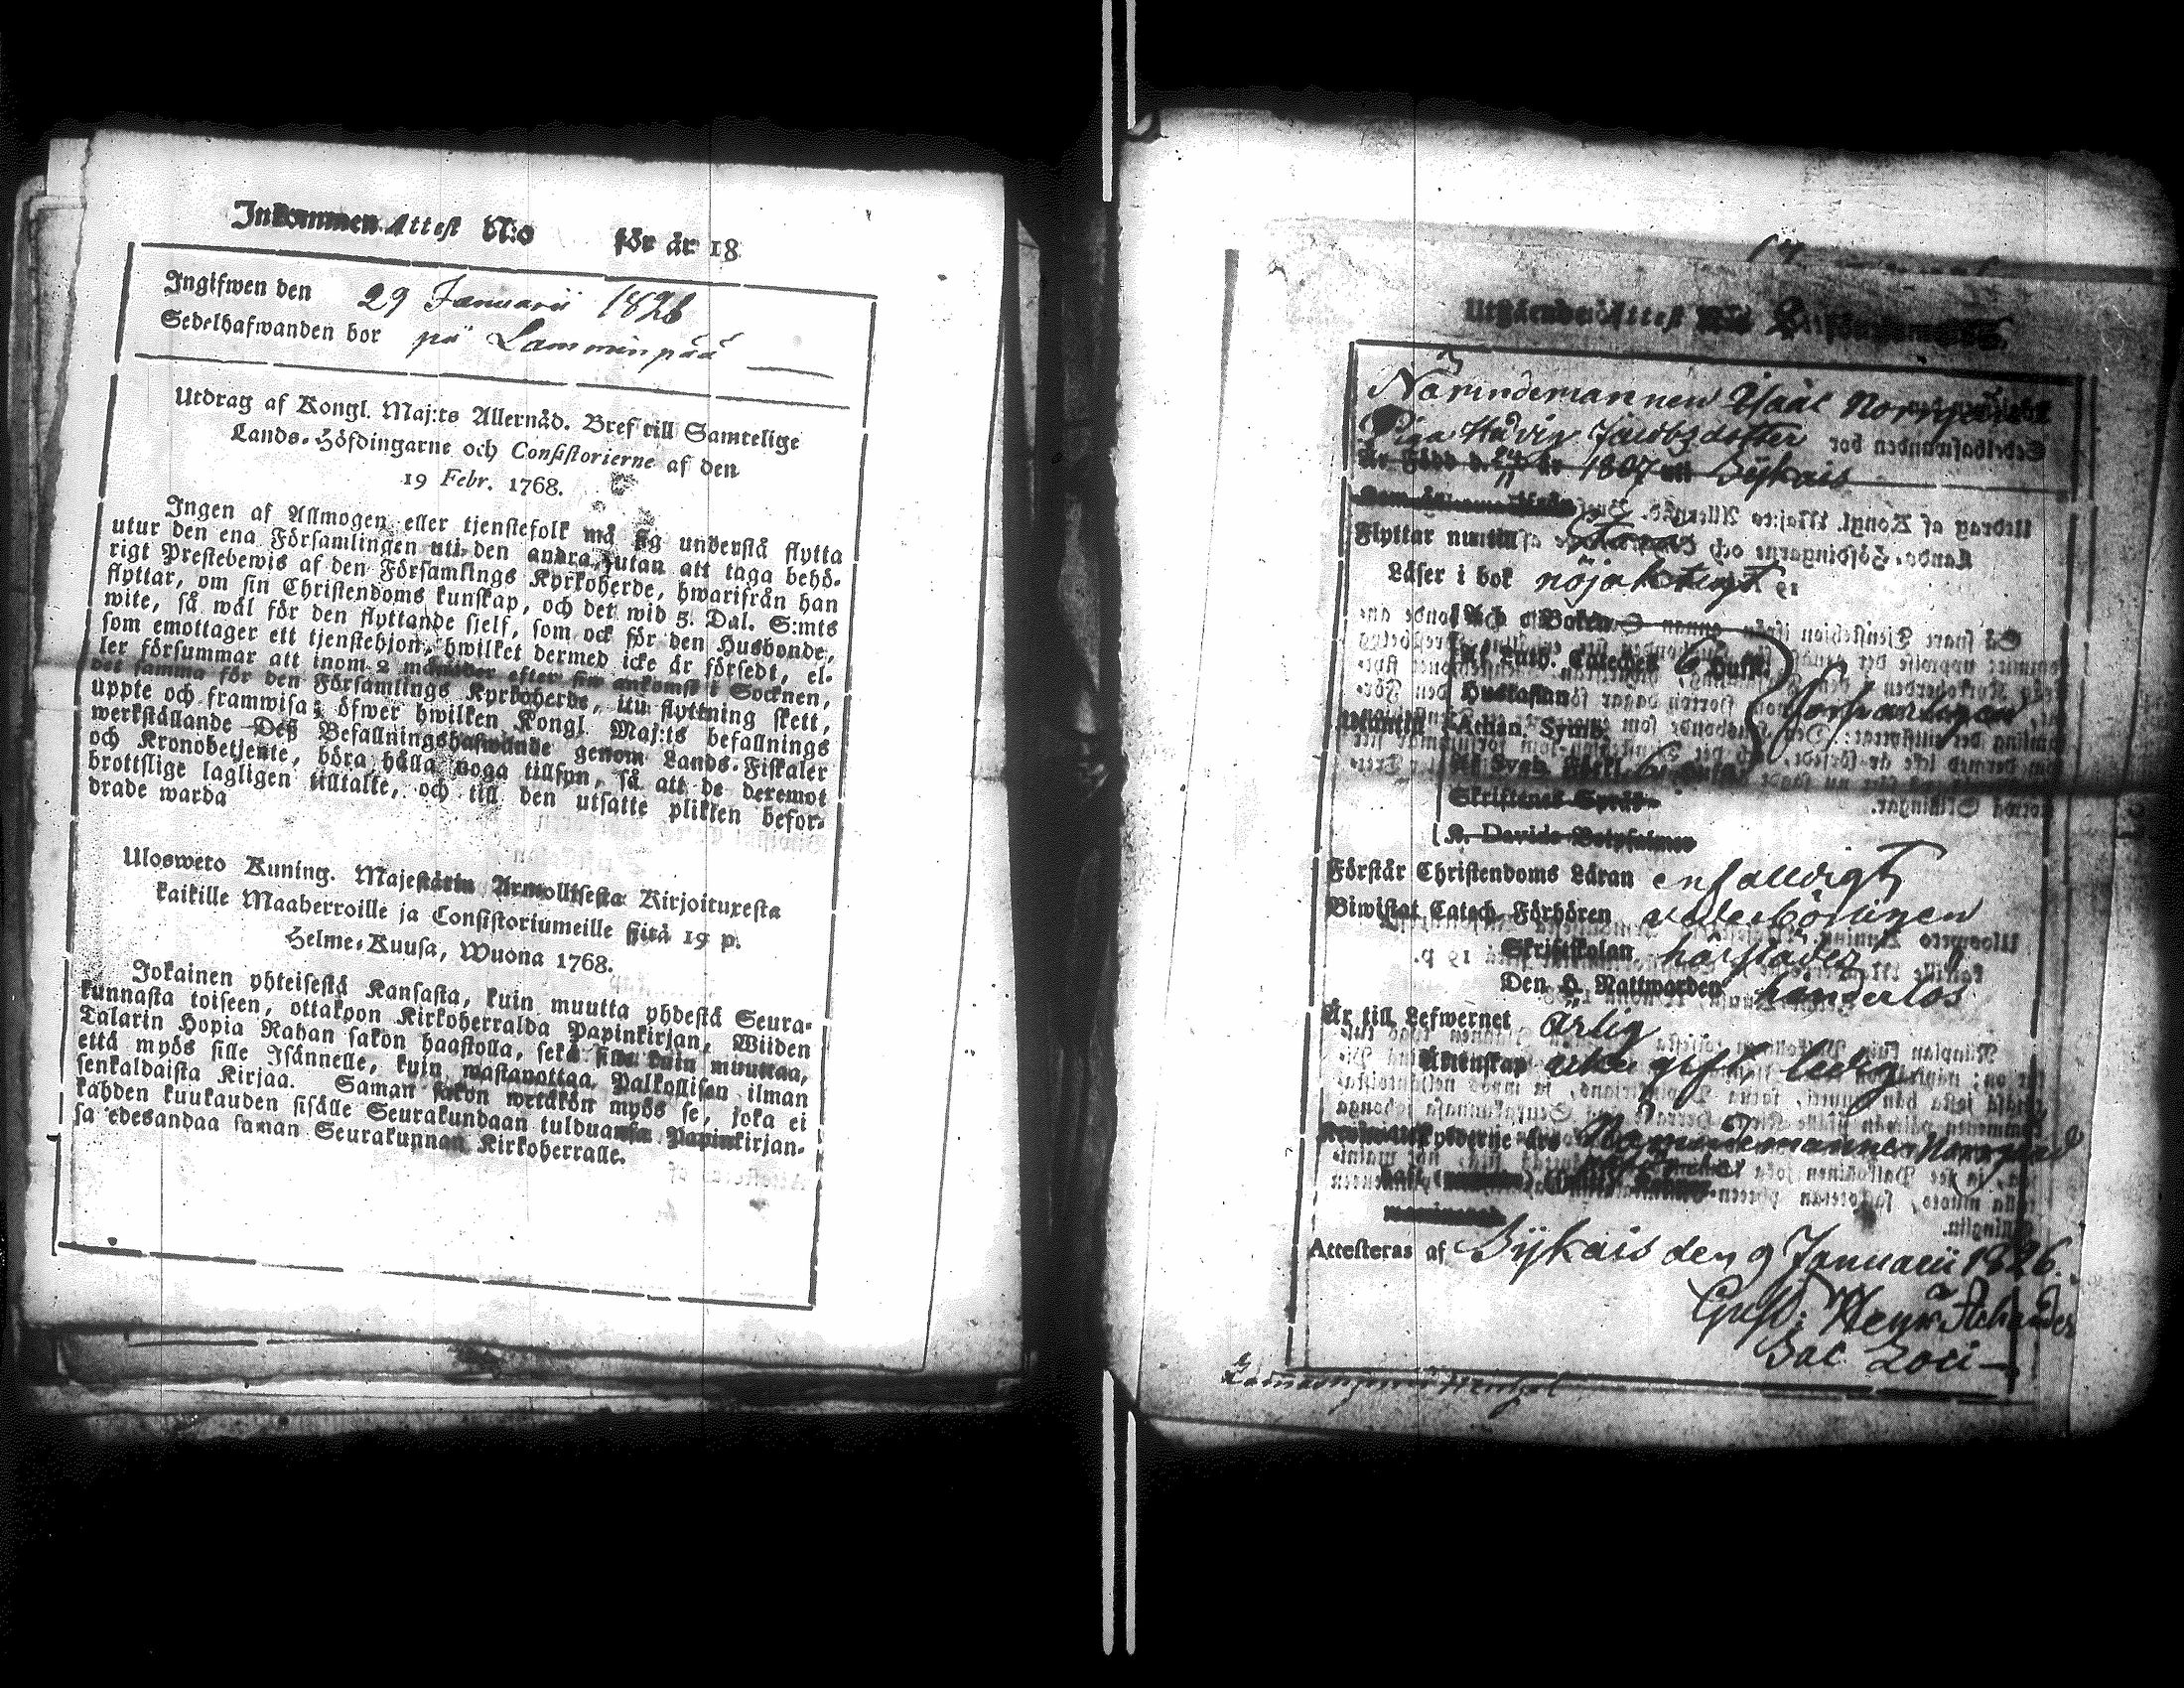 Inkommen Attest N:o för år 18
Ingifwen den 29 Januarii 1826
Sedelhafwanden bor på Lamminpää
Utdrag af Kongl. Maj:ts Allernåd. Bref till Samtelige
Lands-Höfdingarne och Consistorierne af den
19 Febr. 1768.
Ingen af Allmogen eller tjenstefolk må sig understå flytta
utur den ena Församlingen uti den andra, utan att taga behö-
rigt Prestebewis af den Församlings Kyrkoherde, hwarifrån han
flyttar, om sin Christendoms kunskap, och det wid 5. Dal. S:mts
wite, så wäl för den flyttande sielf, som ock för den Husbonde,
som emottager ett tjenstehjon, hwilket dermed icke är försedt, el-
ler försummar att inom 2 månader efter sin ankomst i Socknen,
det samma för den Församlings Kyrkoherde, itu flyttning skett,
uppte och framwisa; öfwer hwilken Kongl. Maj:ts befallnings
werkställande Deß Befallningshafwande genom Lands-Fiskaler
och Kronobetjente, böra hålla noga tillsyn, så att de deremot
brottslige lagligen tilltalte, och till den utsatte plikten befor-
drade warda
Ulosweto Kuning. Majestärin Armollisesta Kirjoituxesta
kaikille Maaherroille ja Consistoriumeille siitä 19 p.
Helme-Kuusa, Wuona 1768.
Jokainen yhteisestä Kansasta, kuin muutta yhdestä Seura-
kunnasta toiseen, ottakoon Kirkoherralda Papinkirjan, Wiiden
Talarin Hopia Rahan sakon haastolla, sekä sille kuin muuttaa,
että myös sille Isännelle, kuin wastanottaa Palkollisen ilman
senkaldaista Kirjaa. Saman sakon wetäkön myös se, joka ei
kahden kuukauden sisälle Seurakundaan tulduansa Papinkirjan-
sa edesandaa saman Seurakunnan Kirkoherralle.
Utgående Attest
Närindemannen Isaac Norrgård
Piga Hedvig Jacobsdotter
Är Född d. 1807 uti Bykais
Flyttar nu till
Läser i bok nöjaktigt
A b c Boken
Af Luth. Cateches 6 Hufst.
Hustaflan
Athan. Symb. försvarligen
Skriftenes Språk
K. Davids Botpsalmer
Förstår Christendoms Läran enfaldigt
Biwistat Catech. Förhören vederbörligen
Skriftskolan härstädes
Den H. Nattwarden hinderlös
Är till Lefwernet ärlig
Äktenskap icke gift, ledig
Närindemannen Norrgård
Attesteras af Bykais den 9 Januarii 1826.
Gust. Henr.
Sac. Loci